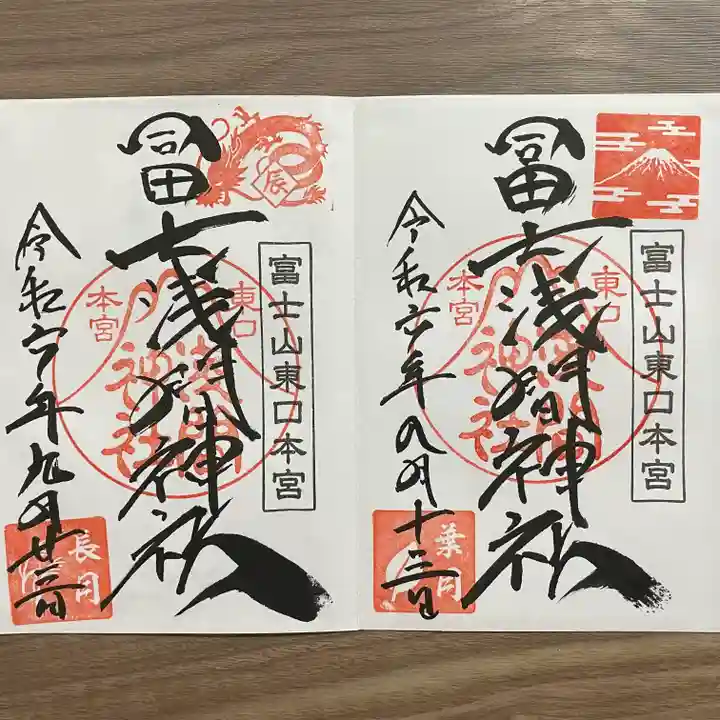 富士山東口本宮
冨士浅間神社
東口
本宮
浅間
神社
令和六年八月十三日
葉月
辰
富士山東口本宮
冨士浅間神社
東口
本宮
浅間
神社
令和六年九月廿
長月